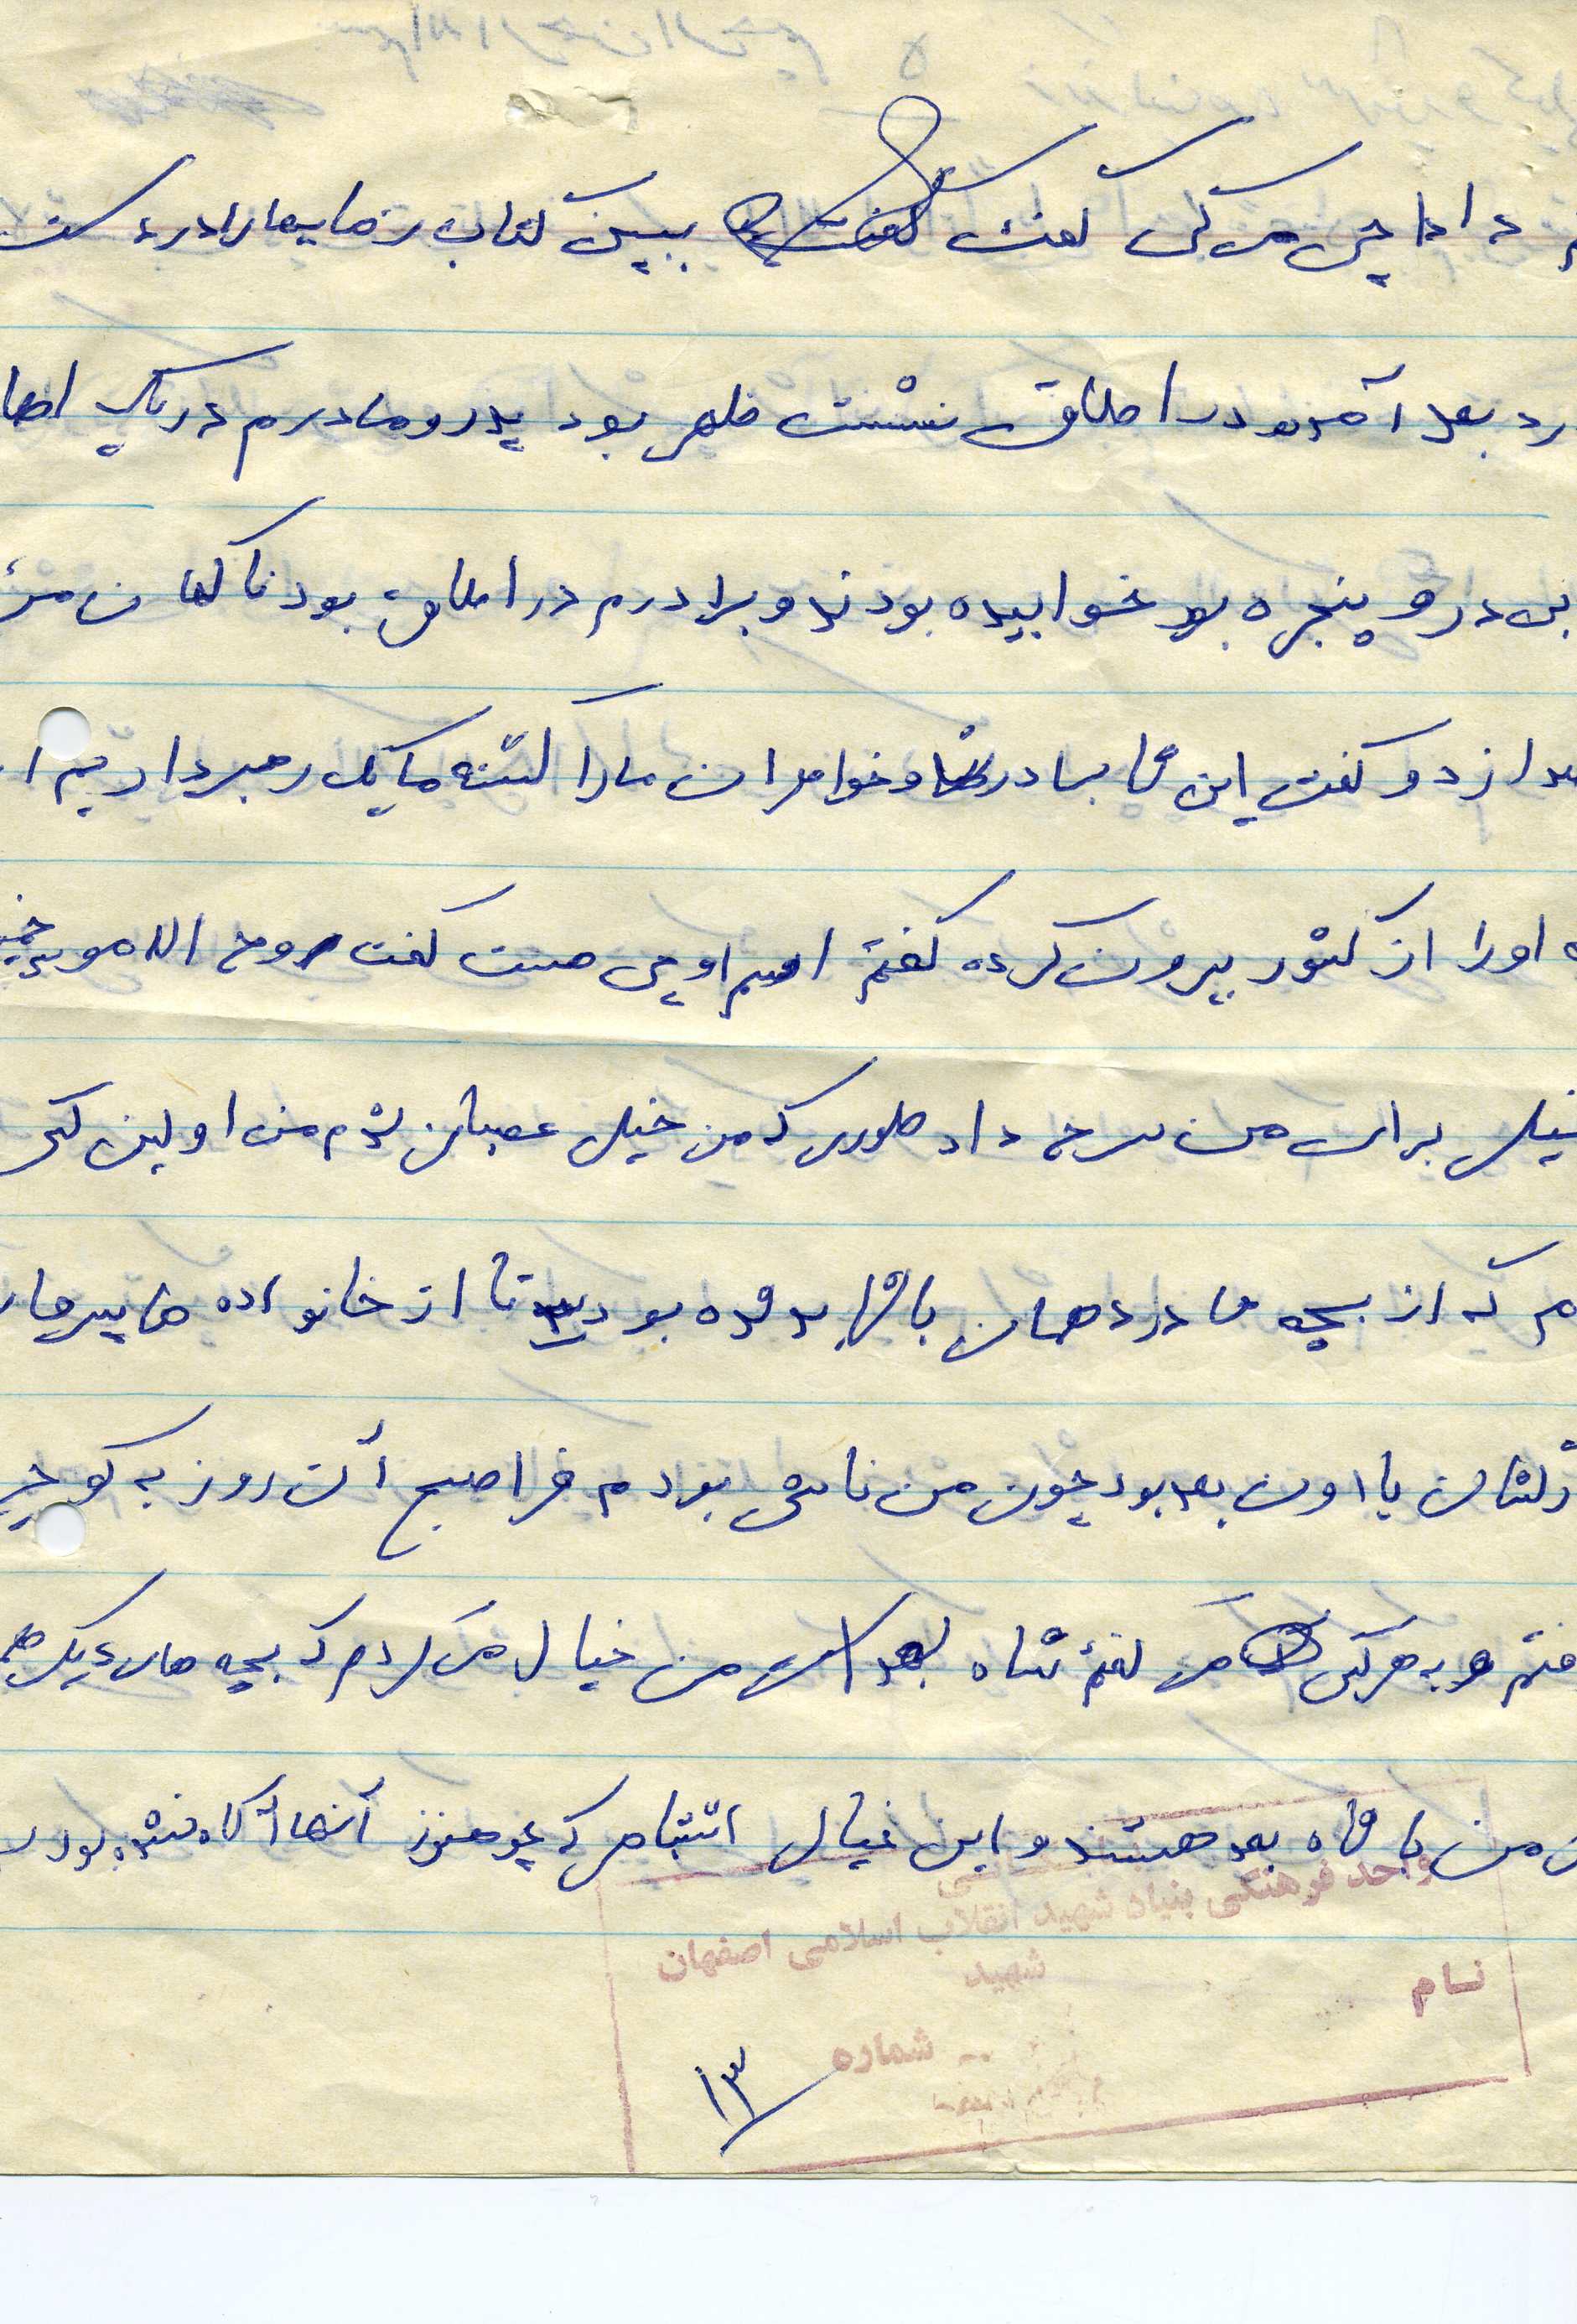 داداچی می کنی گفت ببین کتاب رضاییهارادردست
رد بعد آمدو در اطاق نشست ظهر بود پدرومادرم در یک اطا
بی در و پنجره بود خوابیده بودند و برادرم در اطاق بود ناگهان مرا
صدازد و گفت این شاه برادر و خواهران مارا کشته ما یک رهبر داریم
اورا از کشور بیرون کرده گفتم اسم او چی هست گفت روح الله موسوی خمی
خیلی برای من شرح داد طوری که من خیلی عصبانی شدم من اولین کسی
م که از بچه ها در دهمان باشاه بد شده بود تا از خانواده ها پیرها
بااون بد بود چون من ناشی بودم فردا صبح آن روز به کوچه
فتم و به هرکس می گفتم شاه بد است من خیال می کردم که بچه های دیگر هم
من باشاه بد هستند و این خیال اشتباهی که هنوز آنها آگاه نشده بودند
واحد فرهنگی بنیاد شهید انقلاب اسلامی اصفهان
نام شهید
شماره
۱۳